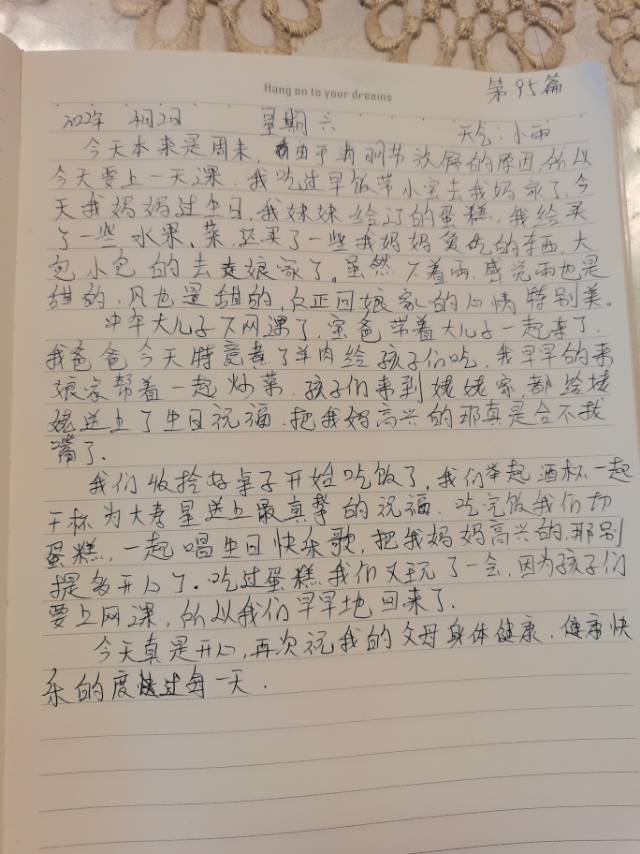 Hang on to your dreams
第95篇
2022年 4月2日 星期六 天气:小雨
今天本来是周末,由于清明节放假的原因,所以
今天要上一天课.我吃过早饭带小宝去我妈家了,今
天我妈妈过生日,我妹妹给订的蛋糕,我给买
了一些水果、菜.还买了一些我妈妈爱吃的东西,大
包小包的去走娘家了。虽然下着雨,感觉雨也是
甜的,风也是甜的,反正回娘家的心情特别美。
中午大儿子下网课了,宝爸带着大儿子一起来了.
我爸爸今天特意煮了羊肉给孩子们吃,我早早的来
娘家帮着一起炒菜.孩子们来到姥姥家,都给姥
姥送上了生日祝福.把我妈高兴的那真是合不拢
嘴了.
我们收拾好桌子开始吃饭了,我们举起酒杯一起
干杯为大寿星送上最真挚的祝福.吃完饭我们切
蛋糕,一起唱生日快乐歌,把我妈妈高兴的那别
提多开心了.吃过蛋糕我们又玩了一会,因为孩子们
要上网课,所以我们早早地回来了.
今天真是开心,再次祝我的父母身体健康.健康快
乐的度过每一天.